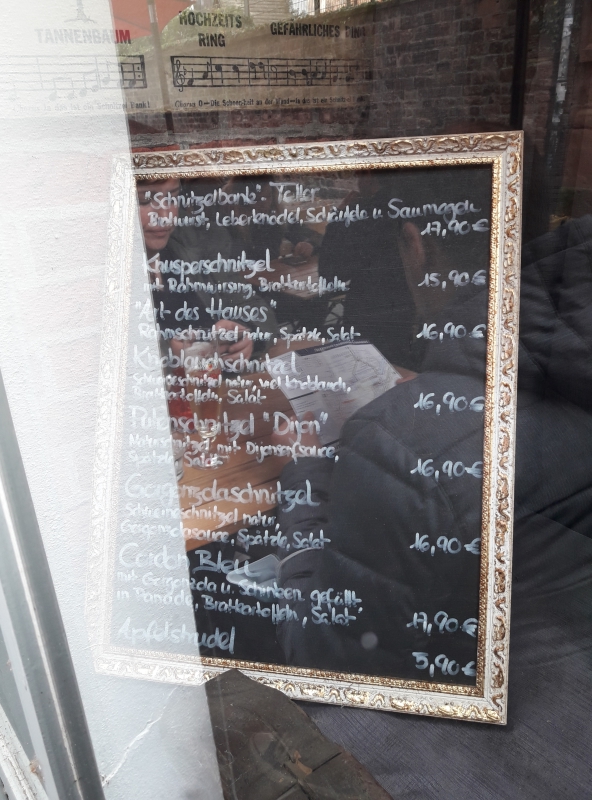 TANNENBAUM
HOCHZEITS
RING
GEFÄHRLICHES
"Schnitzelbank"- Teller
Bratwurst, Leberknödel, Schäufele u Saumagen
17,90€
Knusperschnitzel
mit Rahmwirsing, Bratkartoffeln
15,90€
"Art des Hauses"
Rahmschnitzel natur, Spätzle, Salat
16,90€
Knoblauchschnitzel
Schweineschnitzel natur, viel Knoblauch,
Bratkartoffeln, Salat
16,90€
Putenschnitzel "Dijon"
Naturschnitzel mit Dijonsenfsauce,
Spätzle, Salat
16,90€
Gorgonzolaschnitzel
Schweineschnitzel natur,
Gorgonzolasauce, Spätzle, Salat
16,90€
Cordon Bleu
mit Gorgonzola u. Schinken gefüllt,
in Panade, Bratkartoffeln, Salat
17,90€
Apfelstrudel
5,90€